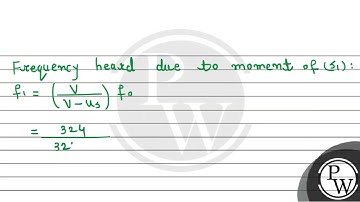 Frequency heard due to moment of (S₁):
f₁ = (V / (V - uₛ)) f₀
= 324 / 32
PW
PW